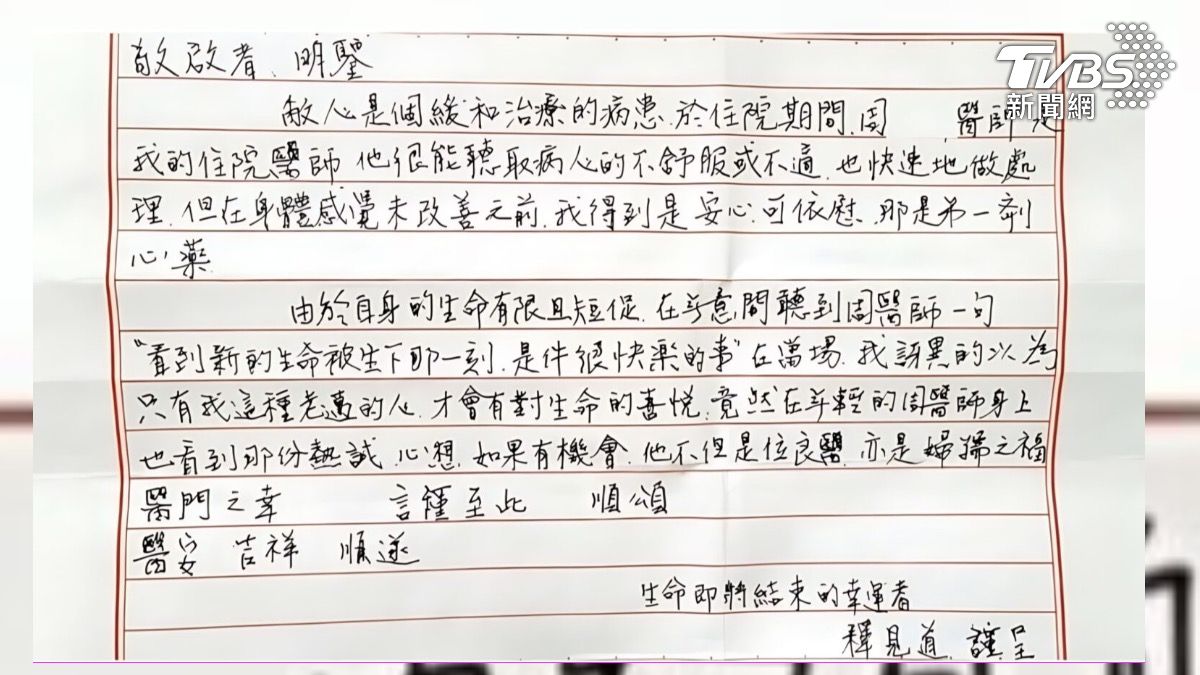 TVBS
新聞網
敬啟者、明鑒
敝人是個緩和治療的病患.於住院期間.周 醫師是
我的住院醫師 他很能聽取病人的不舒服或不適.也快速地做處
理.但在身體感覺未改善之前.我得到是安心.可依慰.那是第一劑
心藥.
由於自身的生命有限且短促.在無意間聽到周醫師一句
"看到新的生命被生下那一刻.是件很快樂的事"在當場.我訝異的以為
只有我這種老邁的人.才會有對生命的喜悅.竟然在年輕的周醫師身上
也看到那份熱誠.心想.如果有機會.他不但是位良醫.亦是婦孺之福
醫門之幸 言謹至此 順頌
醫安 吉祥 順遂
生命即將結束的幸運者
釋見道.謹呈